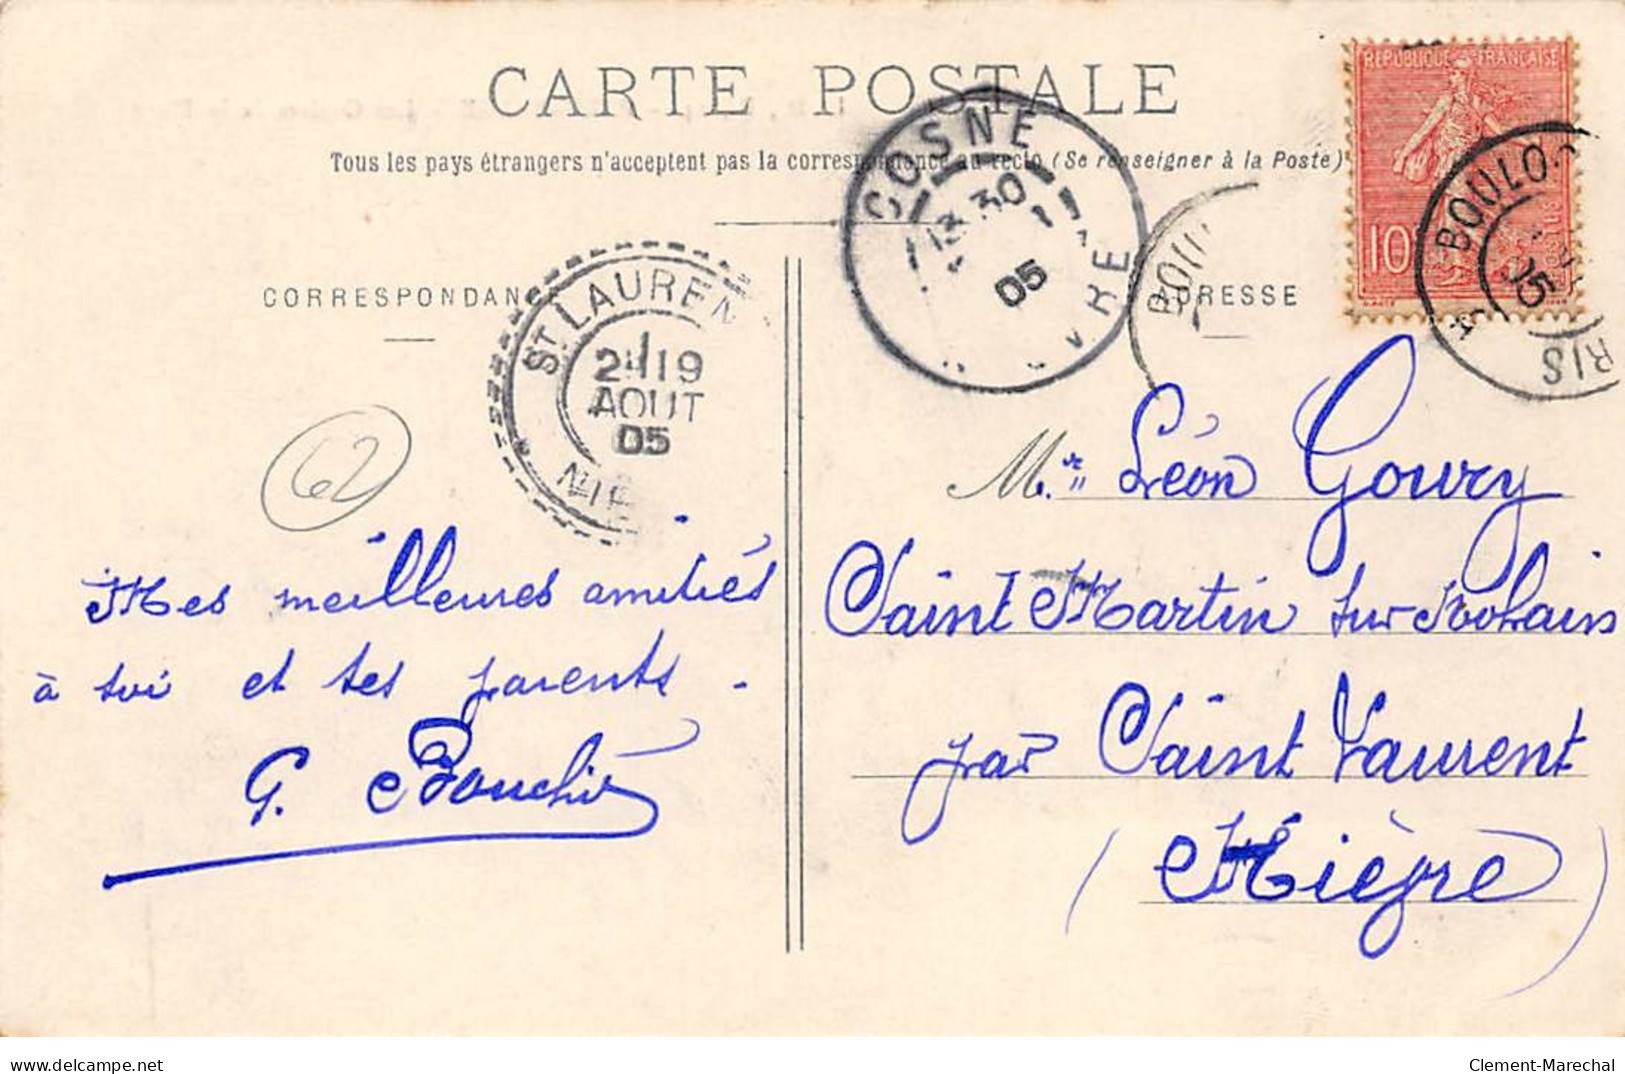 CARTE POSTALE
Tous les pays étrangers n'acceptent pas la correspondance au recto (Se renseigner à la Poste)
RÉPUBLIQUE FRANÇAISE
10
COSNE
13 30
05
BOULO
05
RIS
CORRESPONDANCE
ADRESSE
ST LAUREN
19
AOUT
05
62
Mes meilleures amitiés
à toi et tes parents.
G. Bouchié
Mr Léon Goury
Saint Martin sur Nohain
par Saint Laurent
(Nièvre)
delcampe.net
Clement-Marechal